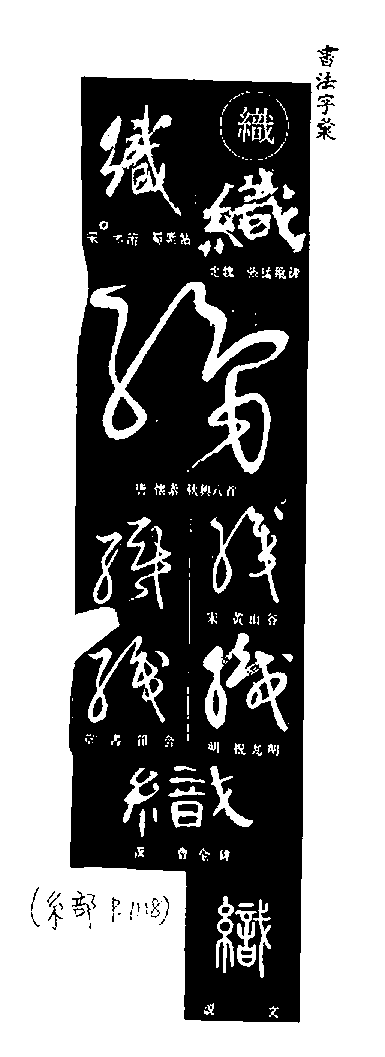 書法字彙
織
織
北魏 張猛龍碑
織
宋 米芾 蜀素帖
織
唐 懷素 秋興八首
織
宋 黃山谷
織
織
明 祝允明
織
草書韻會
織
漢 曹全碑
織
說文
(糸部 P.1118)